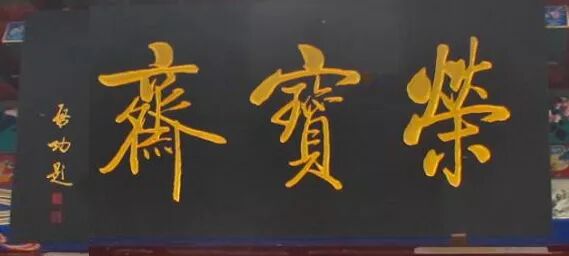 榮寶齋
啓功題